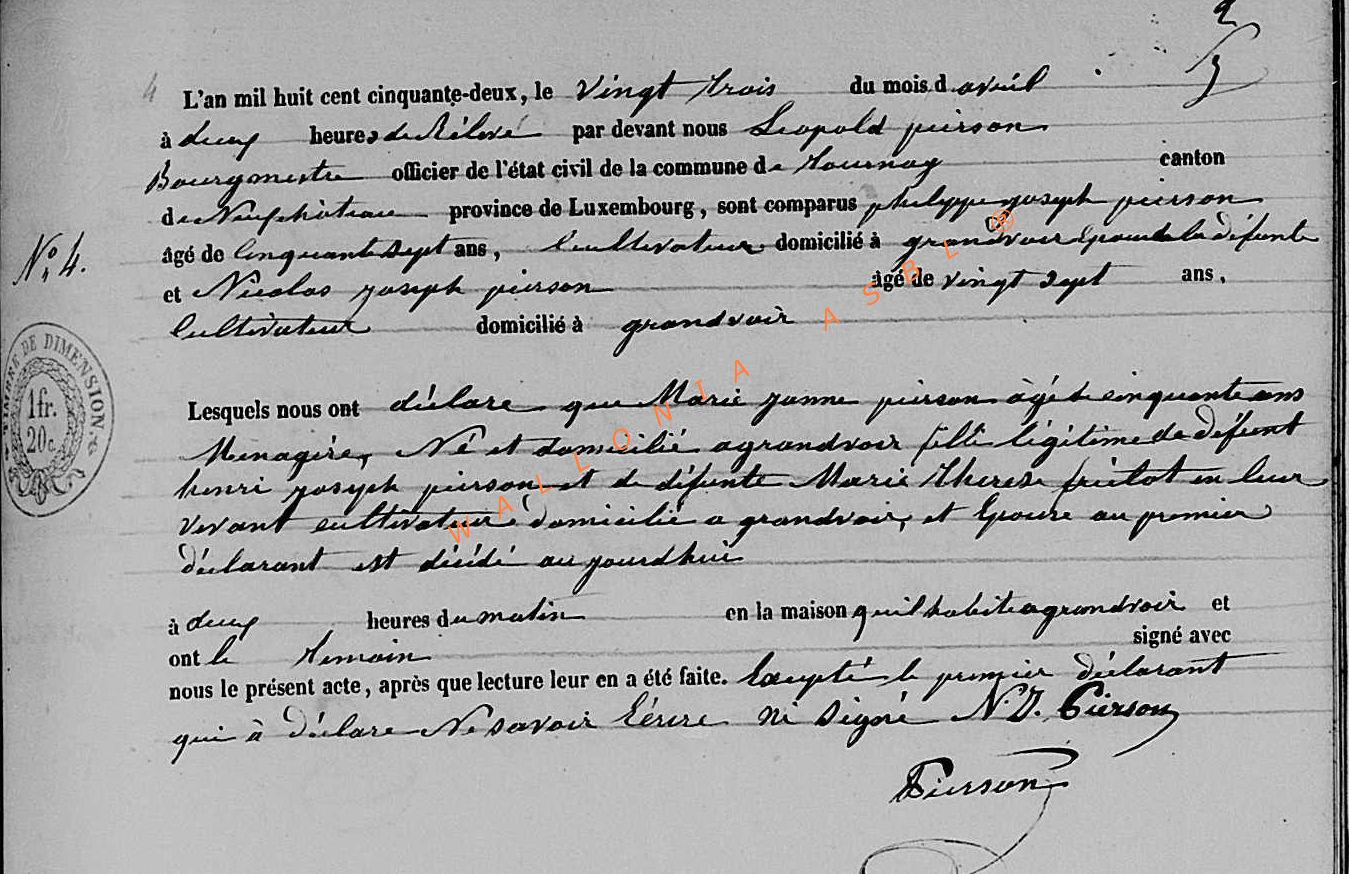 2
4 L'an mil huit cent cinquante-deux, le vingt trois du mois d avril
à deux heures de Rélevé par devant nous Leopold pierson
Bourgmestre officier de l'état civil de la commune de tournay canton
de Neufchateau province de Luxembourg, sont comparus philyppe joseph pierson
âgé de Cinquante sept ans, Cultivateur domicilié à grandvoir Epoux de la défunte
N° 4. et Nicolas joseph pierson âgé de vingt sept ans,
Cultivateur domicilié à grandvoir
TIMBRE DE DIMENSION
1 fr.
20 c.
Lesquels nous ont déclare que Marie janne pierson âgé de cinquante ans
Menagére, Né et domicilié a grandvoir fille légitime de défunt
henri joseph pierson et de défunte Marie Therese en leur
vivant cultivateur domicilié a grandvoir, et Epouse au premier
déclarant est décédé au jourdhui
à deux heures du matin en la maison quil habite a grandvoir et
ont le temoin signé avec
nous le présent acte, après que lecture leur en a été faite. Exepté le premier déclarant
qui à déclare Ne savoir Ecrire Ni Signé N. J. Pierson
Pierson
WALLONIA ASBL ®